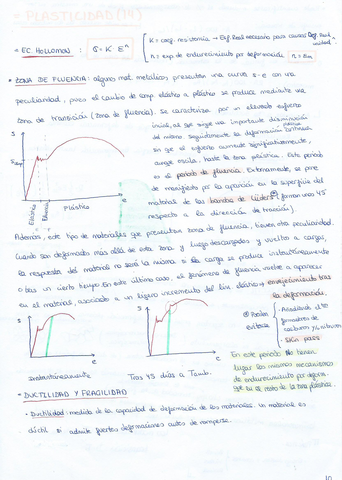 PLASTICIDAD (T4)
• EC. HOLLOMON: σ = K · Eⁿ
K = coef. resistencia → Esf. Real necesario para causar Def. Real unidad.
n = exp. de endurecimiento por deformación
• ZONA DE FLUENCIA: algunos mat. metálicos presentan una curva s-e con una
peculiaridad, pues el cambio de comp. elástico a plástico se produce mediante una
zona de transición (zona de fluencia). Se caracteriza por un elevado esfuerzo
inicial, al que sigue una importante disminución
del mismo. Seguidamente la deformación continúa
sin que el esfuerzo aumente significativamente,
aunque oscila, hasta la zona plástica. Este período
es el período de fluencia. Externamente, se pone
de manifiesto por la aparición en la superficie del
material de las bandas de Lüders (forman unos 45
respecto a la dirección de tracción)
S
e
Elástico
Fluencia
Plástico
Además, este tipo de materiales que presentan zona de fluencia, tienen otra peculiaridad.
Cuando son deformados más allá de esta zona y luego descargados y vuelto a cargar,
la respuesta del material no será la misma si la carga se produce instantáneamente
o tras un cierto tiempo. En este último caso, el fenómeno de fluencia vuelve a aparecer
en el material, asociado a un ligero incremento del lím. elástico → envejecimiento tras
la deformación.
S
e
Instantáneamente
S
e
Tras 45 días a Tamb.
evitarse
formadores de
carburos y/o nitruros
- Skin pass
En este período tienen
lugar los mismos mecanismos
de endurecimiento por deform.
que en el resto de la zona plástica.
• DUCTILIDAD Y FRAGILIDAD
· Ductilidad: medida de la capacidad de deformación de los materiales. Un material es
dúctil si admite fuertes deformaciones antes de romperse.
10